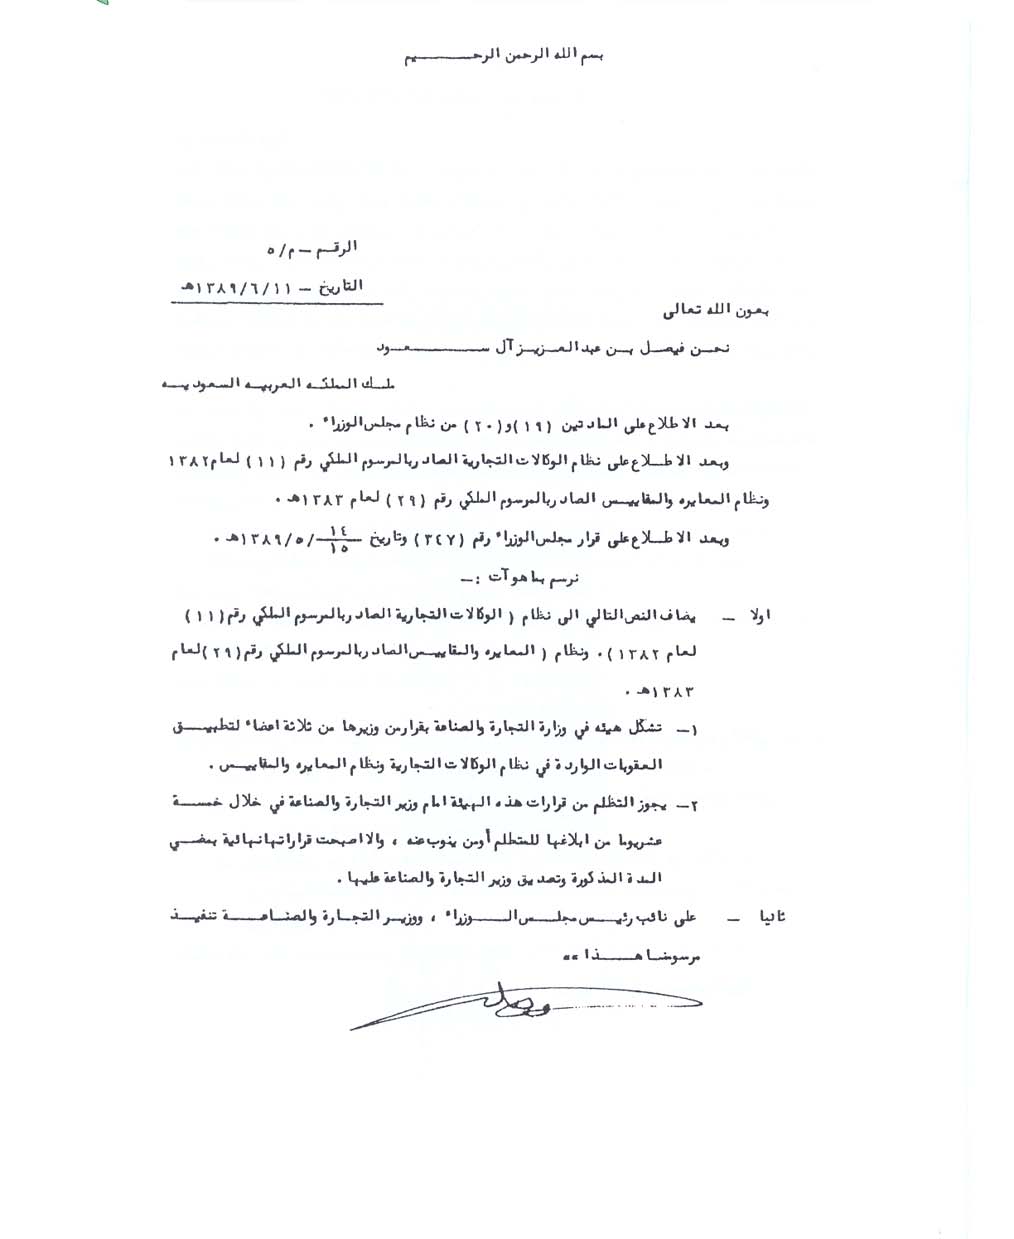 بسم الله الرحمن الرحيم
الرقم – م/٥
التاريخ – ١٣٨٩/٦/١١هـ
بعون الله تعالى
نحن فيصل بن عبدالعزيز آل سعود
ملك المملكه العربيه السعوديه
بعد الاطلاع على المادتين (١٩) و(٢٠) من نظام مجلس الوزراء .
وبعد الاطلاع على نظام الوكالات التجارية الصادر بالمرسوم الملكي رقم (١١) لعام ١٣٨٢
ونظام المعايره والمقاييس الصادر بالمرسوم الملكي رقم (٢٩) لعام ١٣٨٣هـ .
وبعد الاطلاع على قرار مجلس الوزراء رقم (٣٤٧) وتاريخ ١٤/١٥/٥/١٣٨٩هـ .
نرسم بما هو آت :–
اولا – يضاف النص التالي الى نظام ( الوكالات التجارية الصادر بالمرسوم الملكي رقم (١١)
لعام ١٣٨٢) . ونظام ( المعايره والمقاييس الصادر بالمرسوم الملكي رقم (٢٩) لعام
١٣٨٣هـ .
١– تشكل هيئه في وزارة التجارة والصناعة بقرار من وزيرها من ثلاثة اعضاء لتطبيق
العقوبات الواردة في نظام الوكالات التجارية ونظام المعايره والمقاييس .
٢– يجوز التظلم من قرارات هذه الهيئة امام وزير التجارة والصناعة في خلال خمسة
عشر يوما من ابلاغها للمتظلم أو من ينوب عنه ، والا اصبحت قراراتها نهائية بمضي
المدة المذكورة وتصديق وزير التجارة والصناعة عليها .
ثانيا – على نائب رئيس مجلس الوزراء ، ووزير التجارة والصناعة تنفيذ
مرسومنا هذا ،،